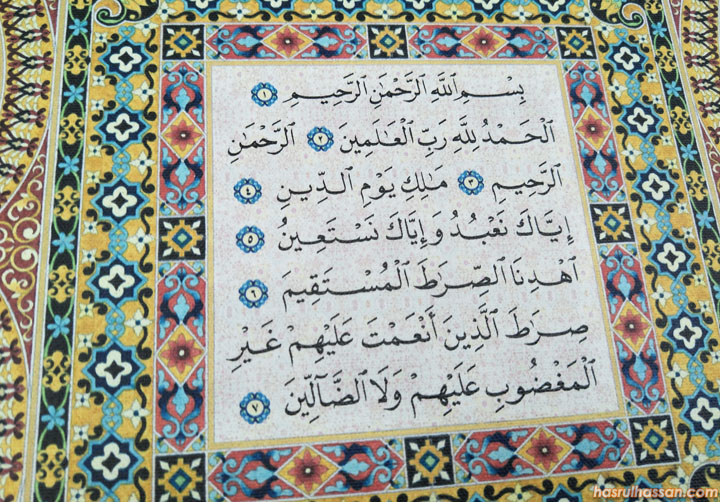 بِسْمِ اللَّهِ الرَّحْمَٰنِ الرَّحِيمِ ١
الْحَمْدُ لِلَّهِ رَبِّ الْعَالَمِينَ ٢ الرَّحْمَٰنِ
الرَّحِيمِ ٣ مَالِكِ يَوْمِ الدِّينِ ٤
إِيَّاكَ نَعْبُدُ وَإِيَّاكَ نَسْتَعِينُ ٥
اهْدِنَا الصِّرَاطَ الْمُسْتَقِيمَ ٦
صِرَاطَ الَّذِينَ أَنْعَمْتَ عَلَيْهِمْ غَيْرِ
الْمَغْضُوبِ عَلَيْهِمْ وَلَا الضَّآلِّينَ ٧
hasrulhassan.com